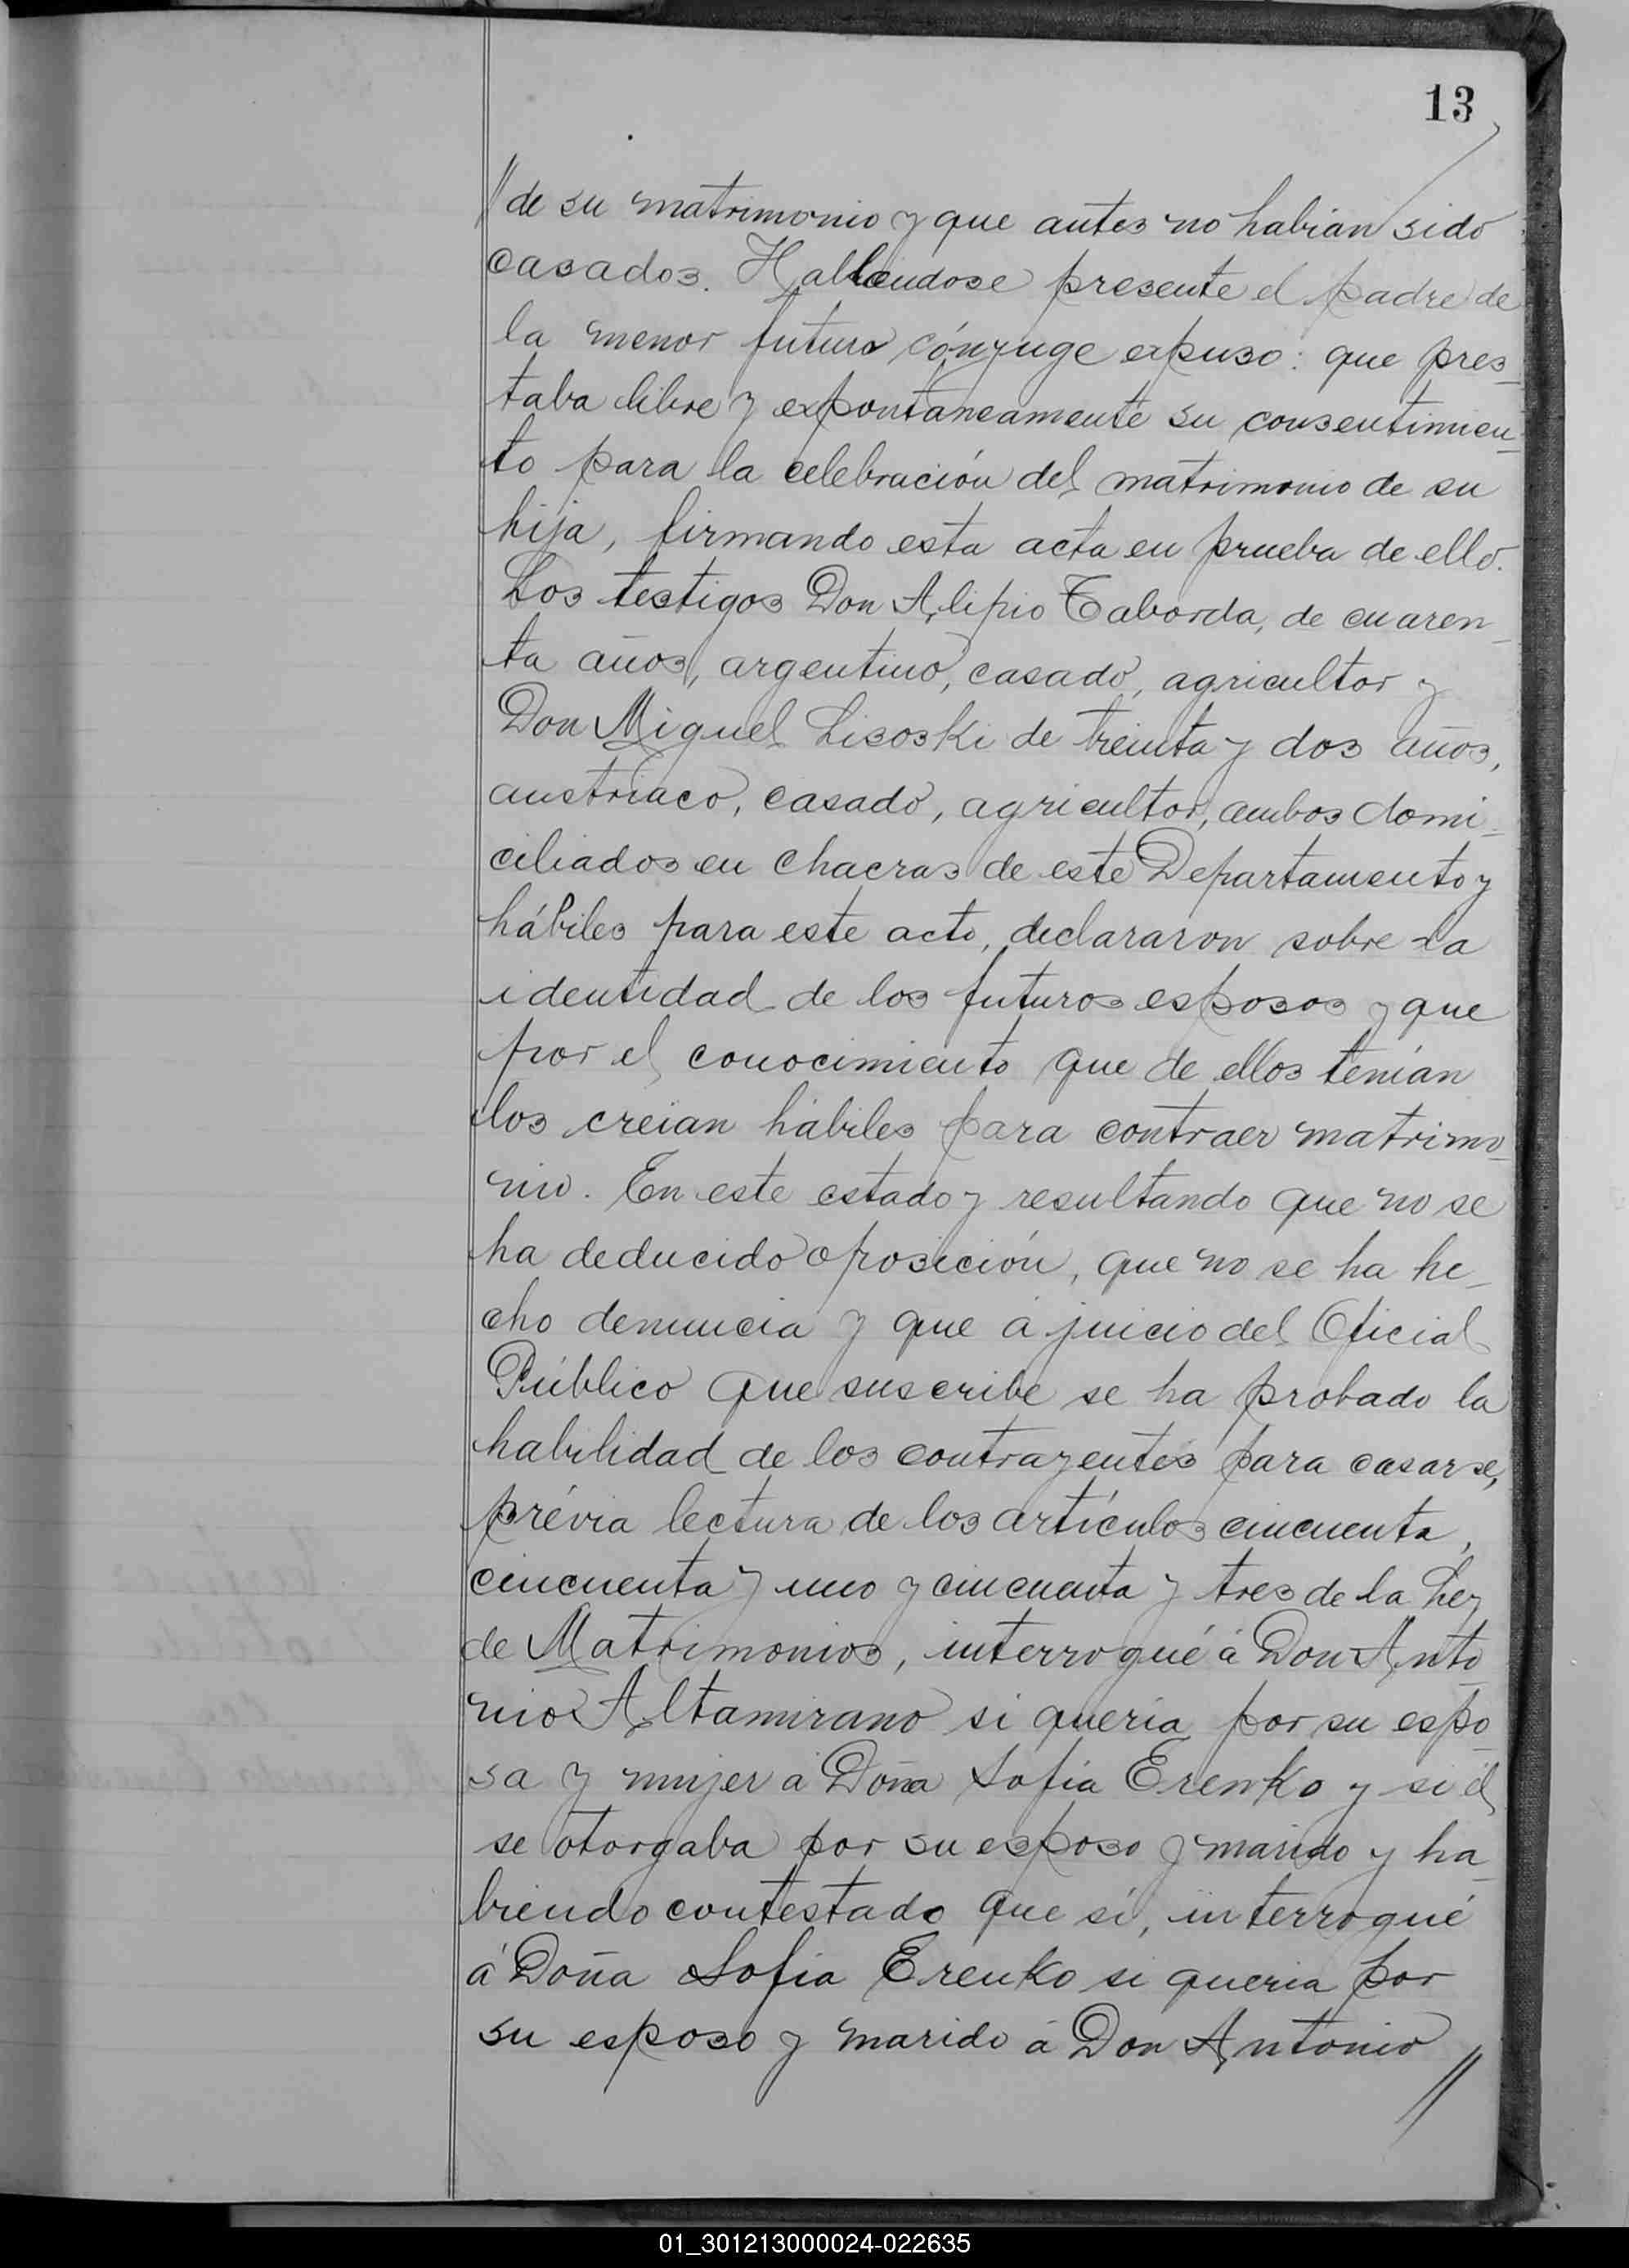 13
// de su matrimonio y que antes no habian sido
casados. Hallandose presente el padre de
la menor futura cónyuge expuso: que pres_
taba libre y expontaneamente su consentimien_
to para la celebración del matrimonio de su
hija, firmando esta acta en prueba de ello.
Los testigos Don Alipio Taborda, de cuaren_
ta años, argentino, casado, agricultor y
Don Miguel Lisoski de treinta y dos años,
austriaco, casado, agricultor, ambos domi_
ciliados en chacras de este Departamento y
hábiles para este acto, declararon sobre la
identidad de los futuros esposos y que
por el conocimiento que de ellos tenian
los creian hábiles para contraer matrimo_
nio. En este estado y resultando que no se
ha deducido oposición, que no se ha he_
cho denuncia y que á juicio del Oficial
Público que suscribe se ha probado la
habilidad de los contrayentes para casarse,
prévia lectura de los artículos cincuenta,
cincuenta y uno y cincuenta y tres de la Ley
de Matrimonios, interrogué á Don Anto_
nio Altamirano si queria por su espo_
sa y mujer á Doña Sofia Erenko y si él
se otorgaba por su esposo y marido y ha_
biendo contestado que sí, interrogué
á Doña Sofia Erenko si queria por
su esposo y marido á Don Antonio //
01_301213000024-022635